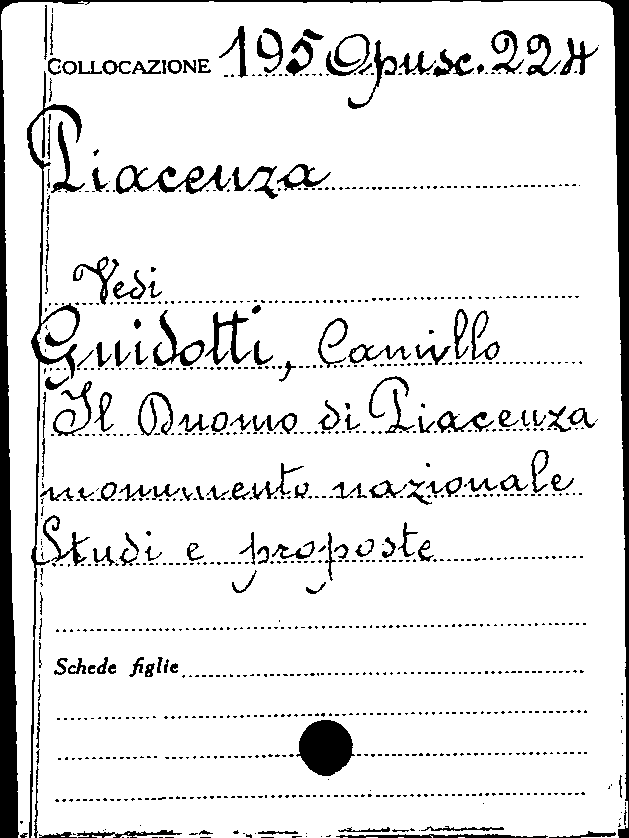 COLLOCAZIONE 195 Opusc. 224
Piacenza
Vedi
Guidotti, Camillo
Il Duomo di Piacenza
monumento nazionale
Studi e proposte
Schede figlie